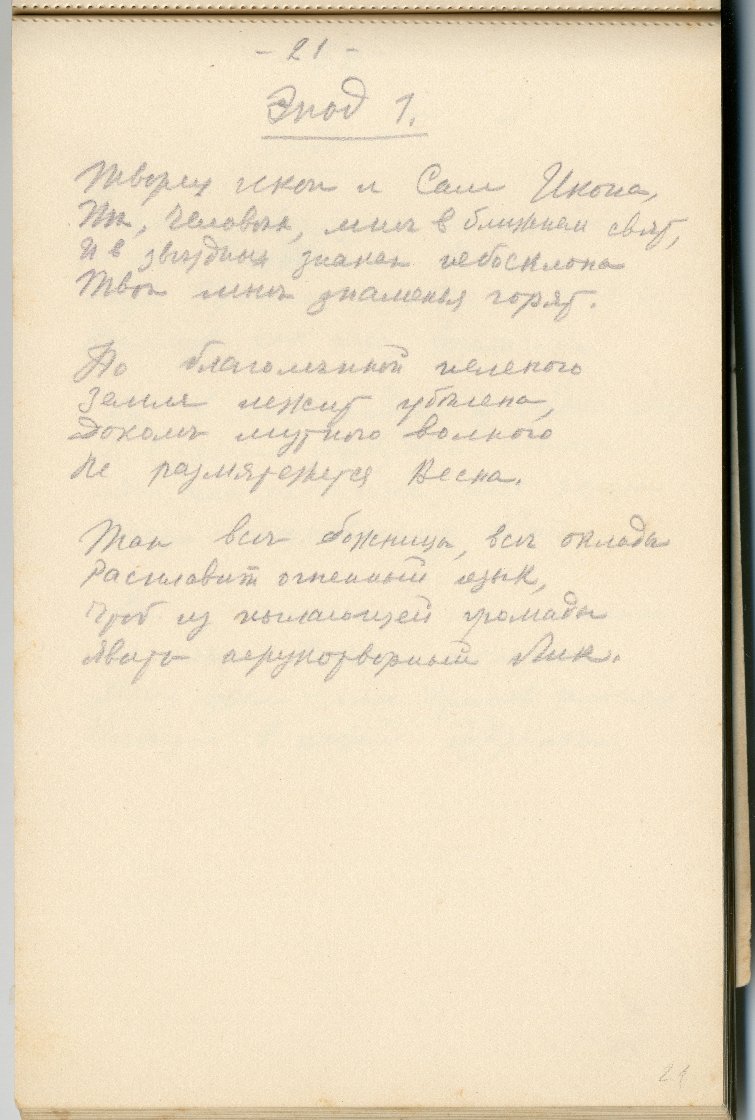 - 21 -
Эпод 1.
Творец икон и Сам Икона,
Ты, Человѣк, мнѣ в ближнем свят,
И в звѣздных знаках небосклона
Твои мнѣ знаменья горят.
Но благолѣпной пеленою
Земля лежит убѣлена,
Доколѣ мутною волною
Не размятежится Весна.
Так всѣ божницы, всѣ оклады
Расплавит огненный язык,
Чтоб из пылающей громады
Явить нерукотворный Лик.
21